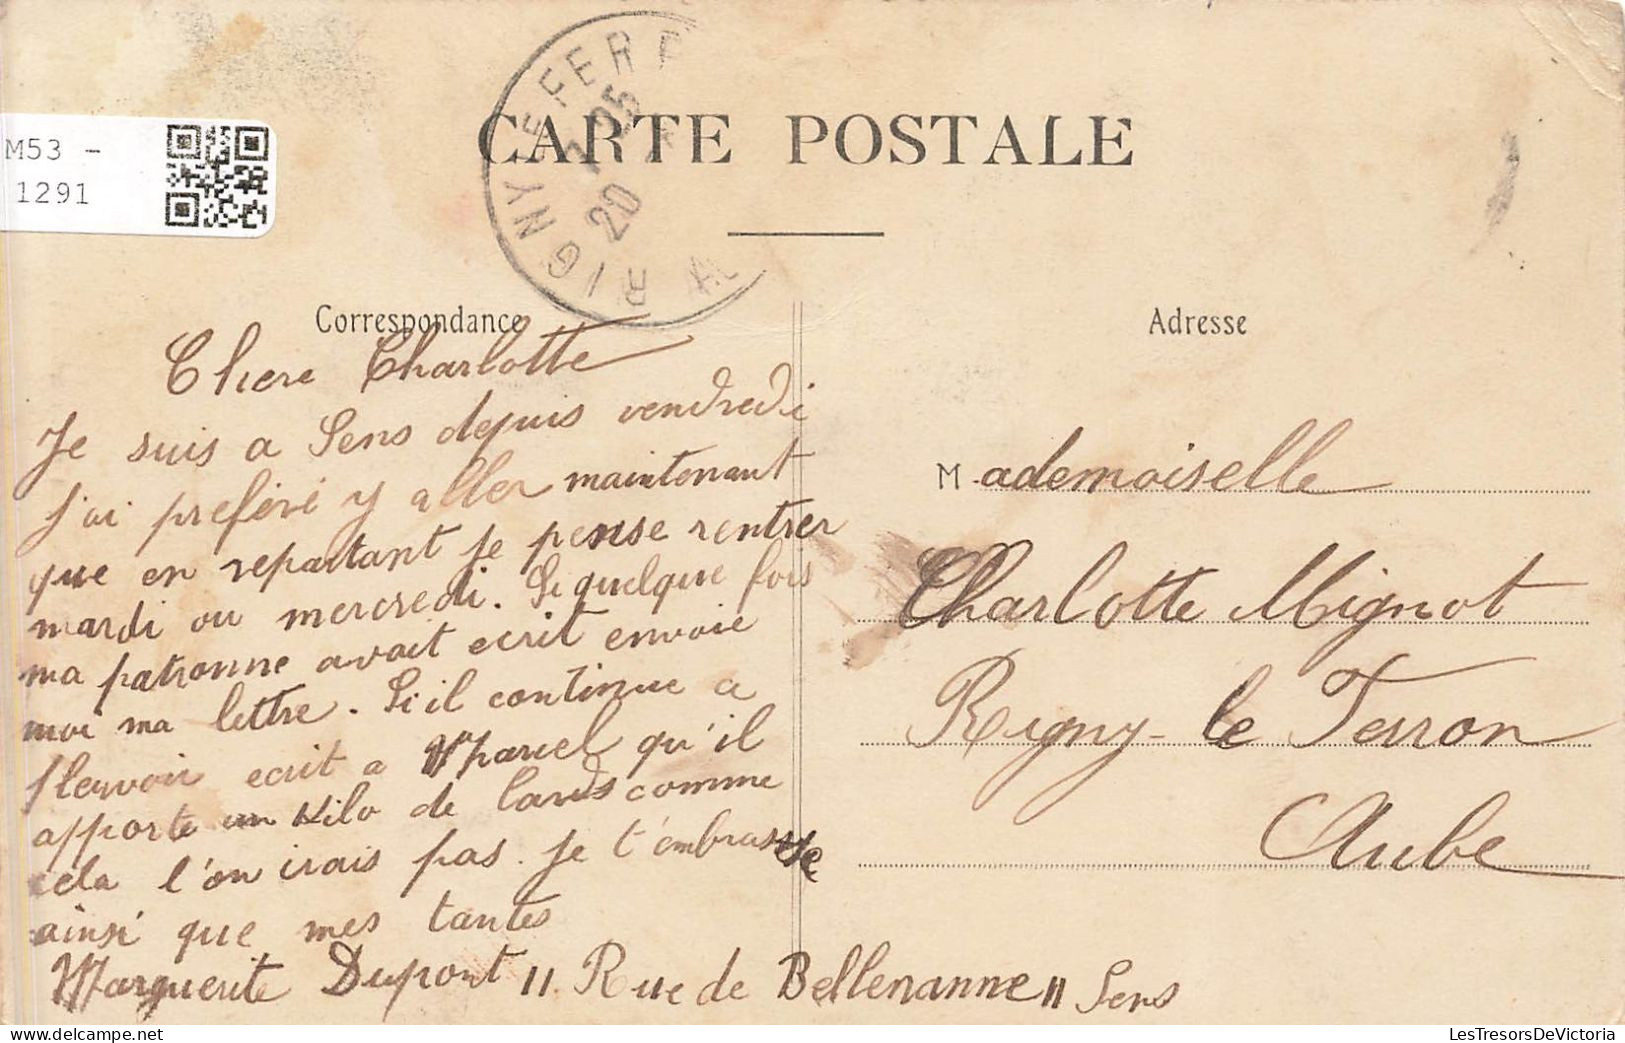 M53 -
1291
RIGNY-LE-FERR
25
20
CARTE POSTALE
Correspondance
Adresse
Chere Charlotte
Je suis a Sens depuis vendredi
j'ai preféré y aller maintenant
que en repartant je pense rentrer
mardi ou mercredi. Si quelque fois
ma patronne avait ecrit envoie
moi ma lettre. Si il continue a
pleuvoir ecrit a Marcel qu'il
apporte un Kilo de lards comme
cela l'on irais pas. Je t'embrasse
ainsi que mes tantes
Marguerite Dupont 11 Rue de Bellenanne 11 Sens
Mademoiselle
Charlotte Mignot
Rigny-le Ferron
Aube
LesTresorsDeVictoria